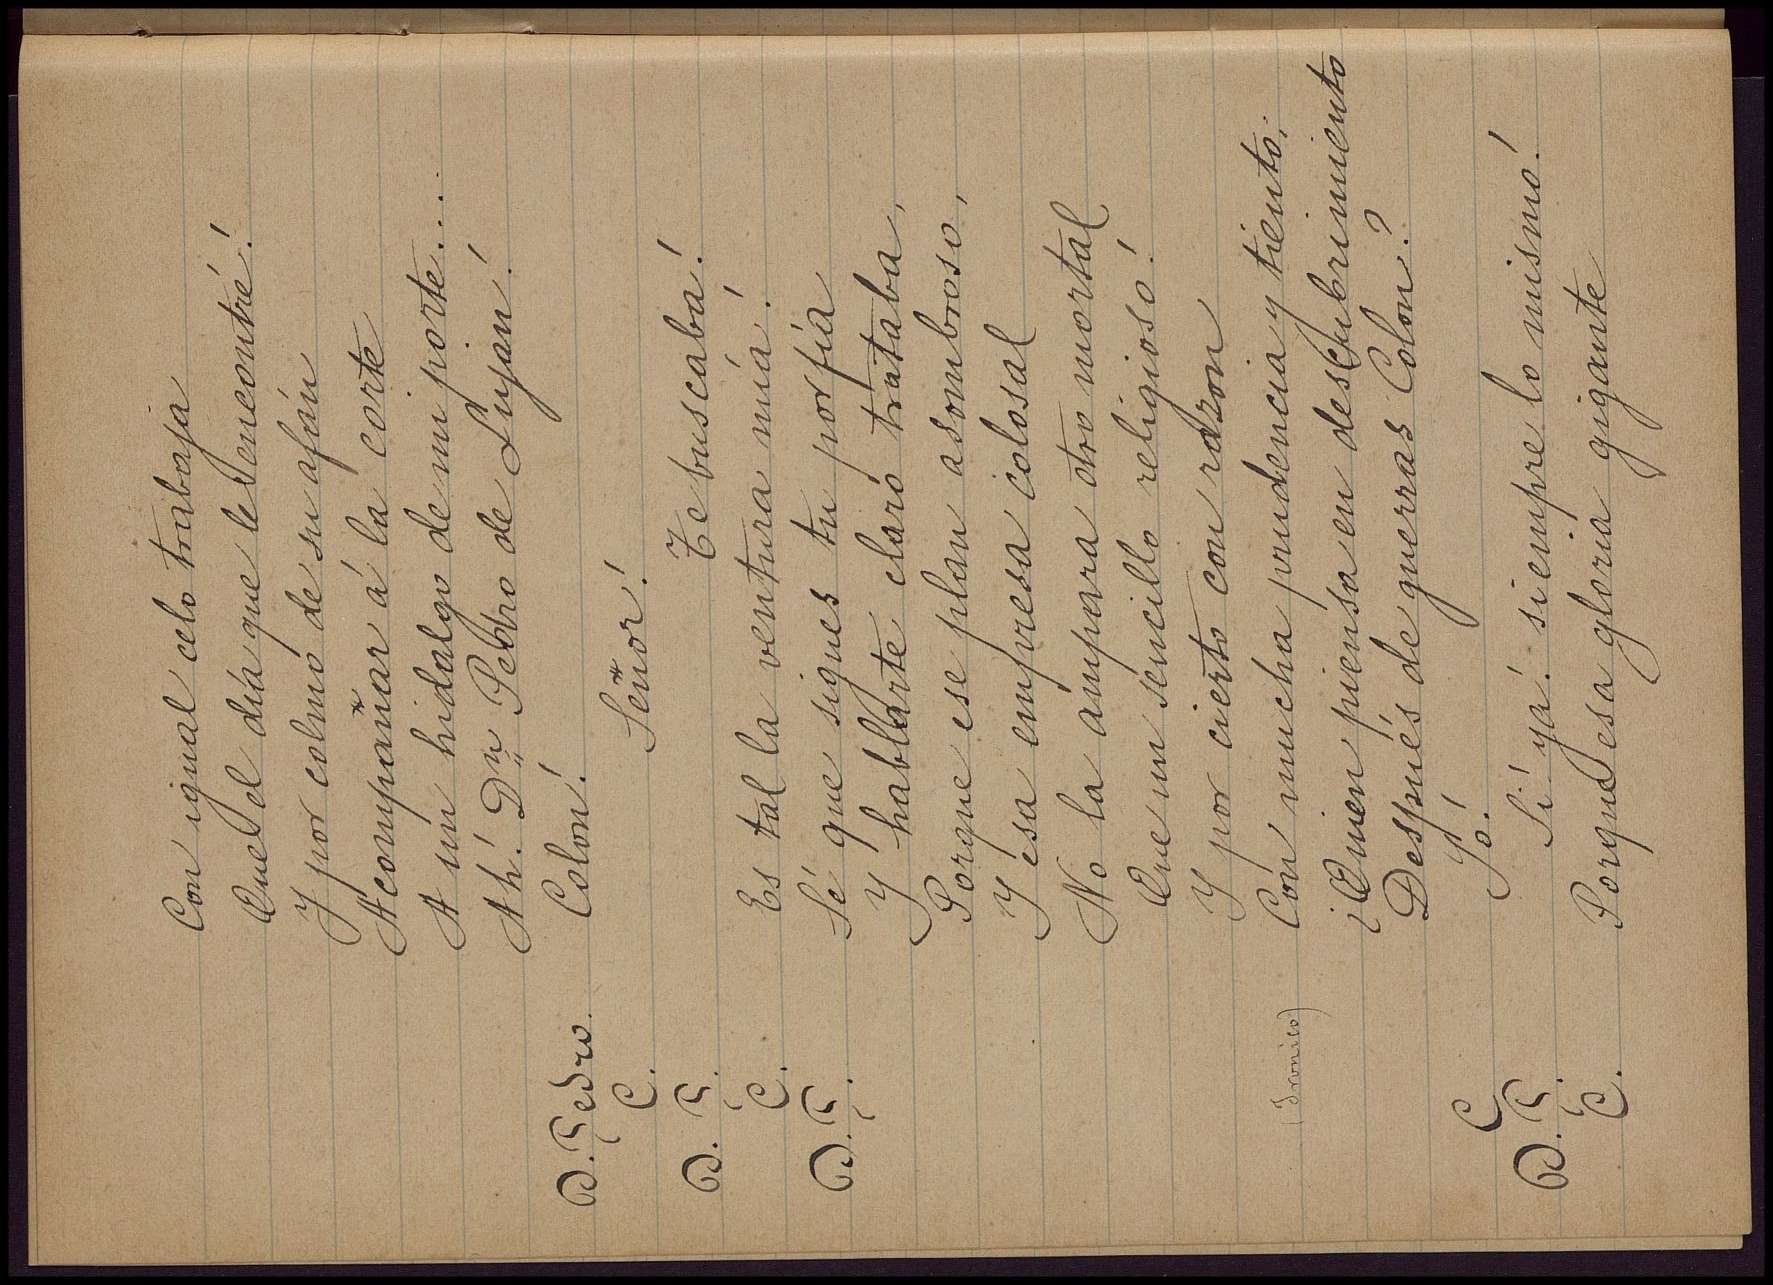 Con igual celo trabaja
Que el día que le encontré!
Y por colmo de su afán
Acompañar á la corte
A un hidalgo de mi porte...
Ah! Dn Pedro de Luján!
D. Pedro. Colon!
C. Señor!
D. P. Te buscaba!
C. Es tal la ventura mia!
D. P. Sé que sigues tu porfía
Y hablarte claro trataba,
Porque ese plan asombroso,
Y esa empresa colosal
No la ampara otro mortal
Que un sencillo religioso!
Y por cierto con razon
(Irónico) Con mucha prudencia y tiento;
¿Quien piensa en descubrimiento
Después de guerras Colon?
C Yo!
D. P. Sí ya! siempre lo mismo!
C. Porque esa gloria gigante